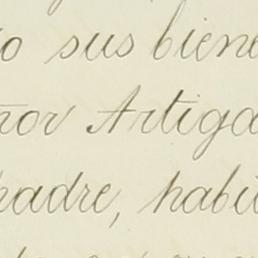 o sus biene
nor Artiga
padre, habi